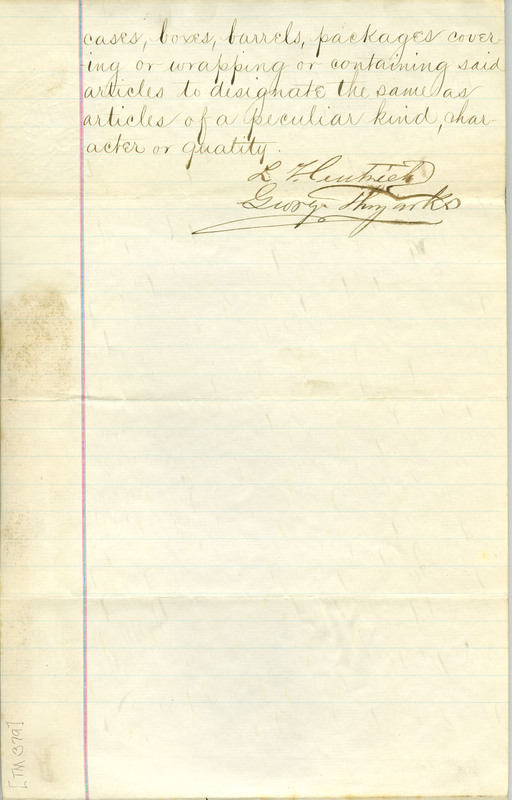 cases, boxes, barrels, packages cover-
ing or wrapping or containing said
articles to designate the same as
articles of a peculiar kind, char-
acter or quality.
George
[TM 379]